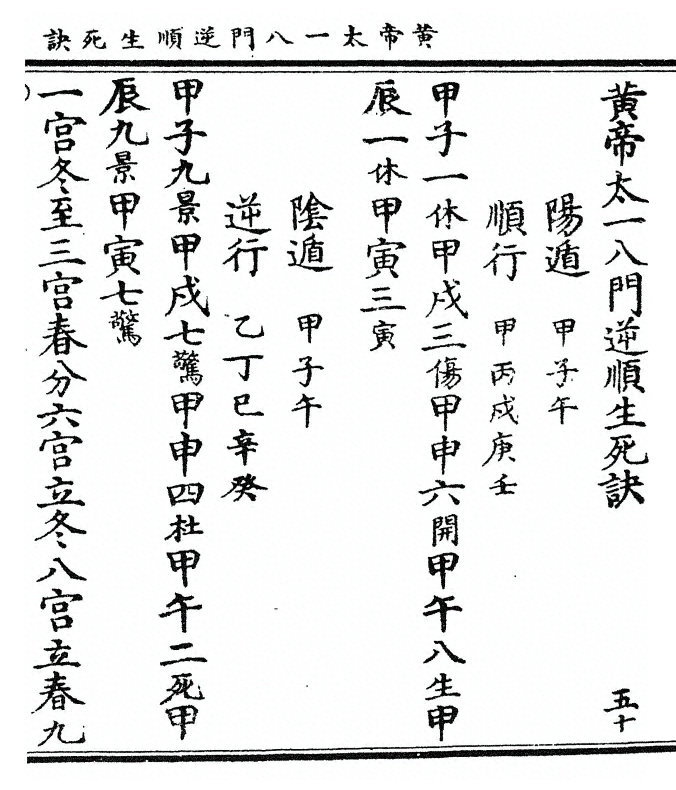 黄帝太一八門逆順生死訣
黄帝太一八門逆順生死訣 五十
陽遁 甲子午
順行 甲丙戍庚壬
甲子一休甲戍三傷甲申六開甲午八生甲
辰一休甲寅三寅
陰遁 甲子午
逆行 乙丁巳辛癸
甲子九景甲戍七驚甲申四杜甲午二死甲
辰九景甲寅七驚
一宮冬至三宮春分六宮立冬八宮立春九